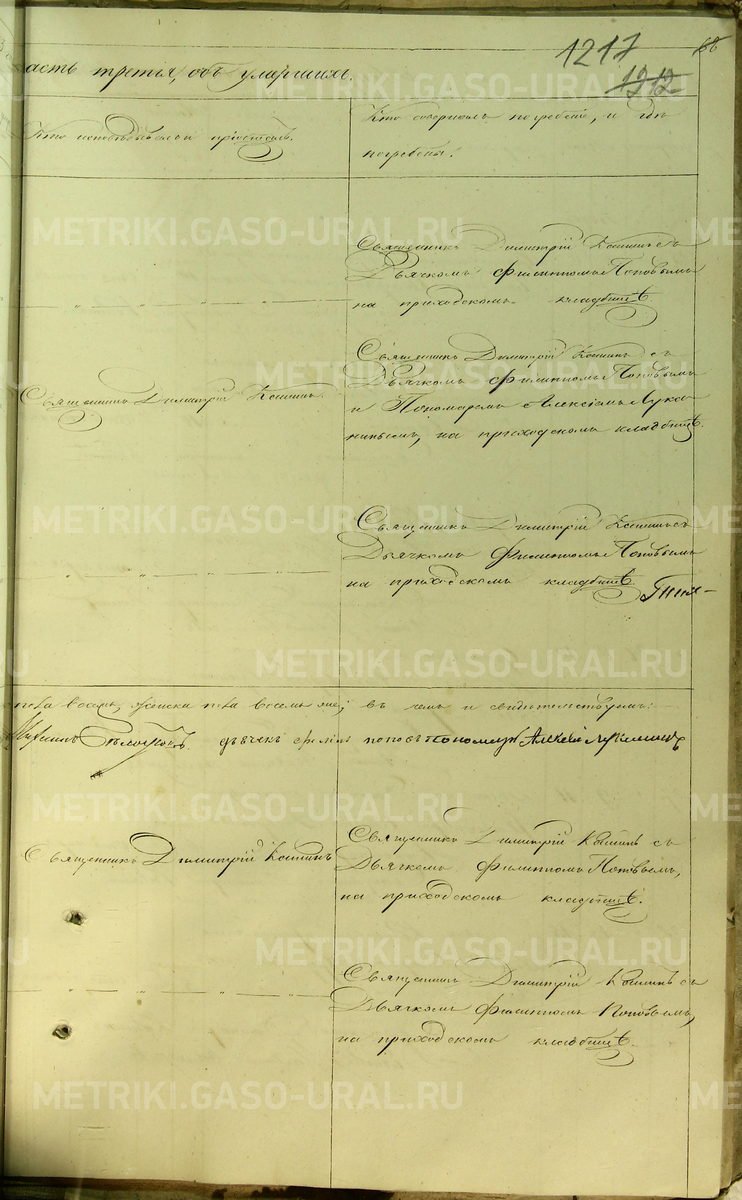 1217
68
1212
асть третія, объ умершихъ.
Кто исповѣдывалъ и пріобщалъ.
Кто совершалъ погребеніе, и гдѣ
погребены.
Священникъ Димитрій Кошинъ съ
Дьячкомъ Филиппомъ Поповымъ
на приходскомъ кладбищѣ.
Священникъ Димитрій Кошинъ.
Священникъ Димитрій Кошинъ съ
Дьячкомъ Филиппомъ Поповымъ
и Пономаремъ Алексіемъ Луки-
нинымъ, на приходскомъ кладбищѣ.
Священникъ Димитрій Кошинъ съ
Дьячкомъ Филиппомъ Поповымъ
на приходскомъ кладбищѣ.
пола восемь, женска пола восемь же; въ чемъ и свидѣтельствуемъ:
Михаилъ дьячекъ Филипъ поповъ пономарь Алексѣй
Священникъ Димитрій Кошинъ
Священникъ Димитрій Кошинъ съ
Дьячкомъ Филиппомъ Поповымъ,
на приходскомъ кладбищѣ.
Священникъ Димитрій Кошинъ съ
Дьячкомъ Филиппомъ Поповымъ,
на приходскомъ кладбищѣ.
METRIKI.GASO-URAL.RU